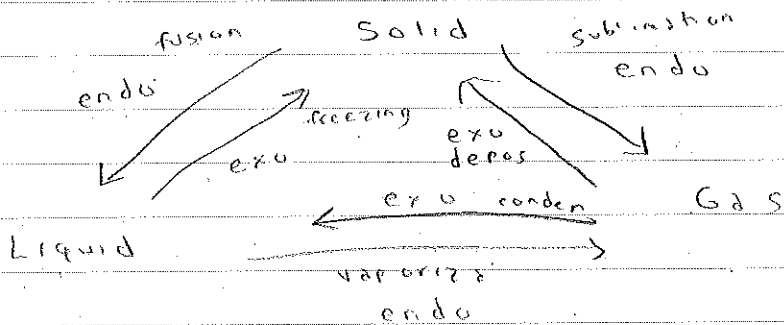 fusion Solid sublimation
endo endo
freezing
exo exo
depos
exo conden Gas
Liquid
vaporiz
endo